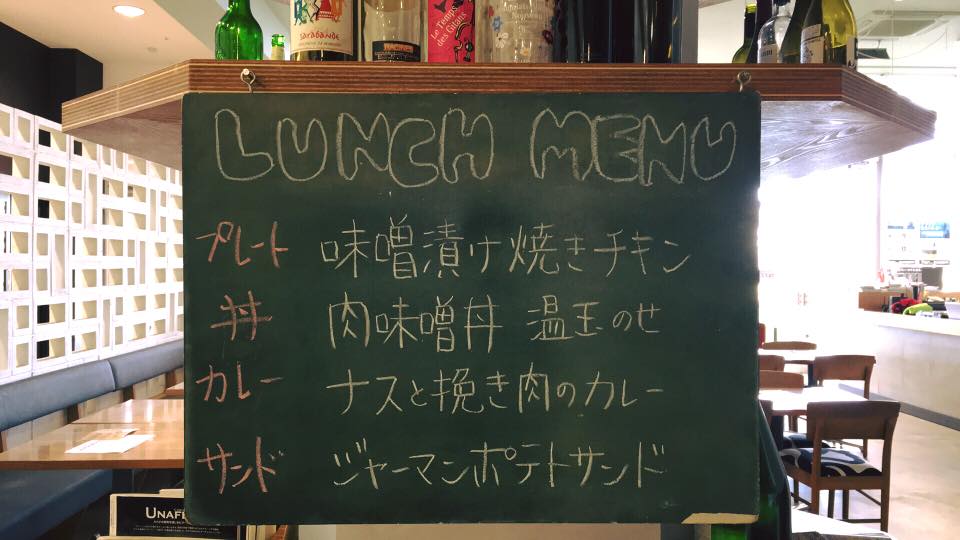 Sarabande
Le Temps
des Gitans
LUNCH MENU
プレート 味噌漬け焼きチキン
丼 肉味噌丼 温玉のせ
カレー ナスと挽き肉のカレー
サンド ジャーマンポテトサンド